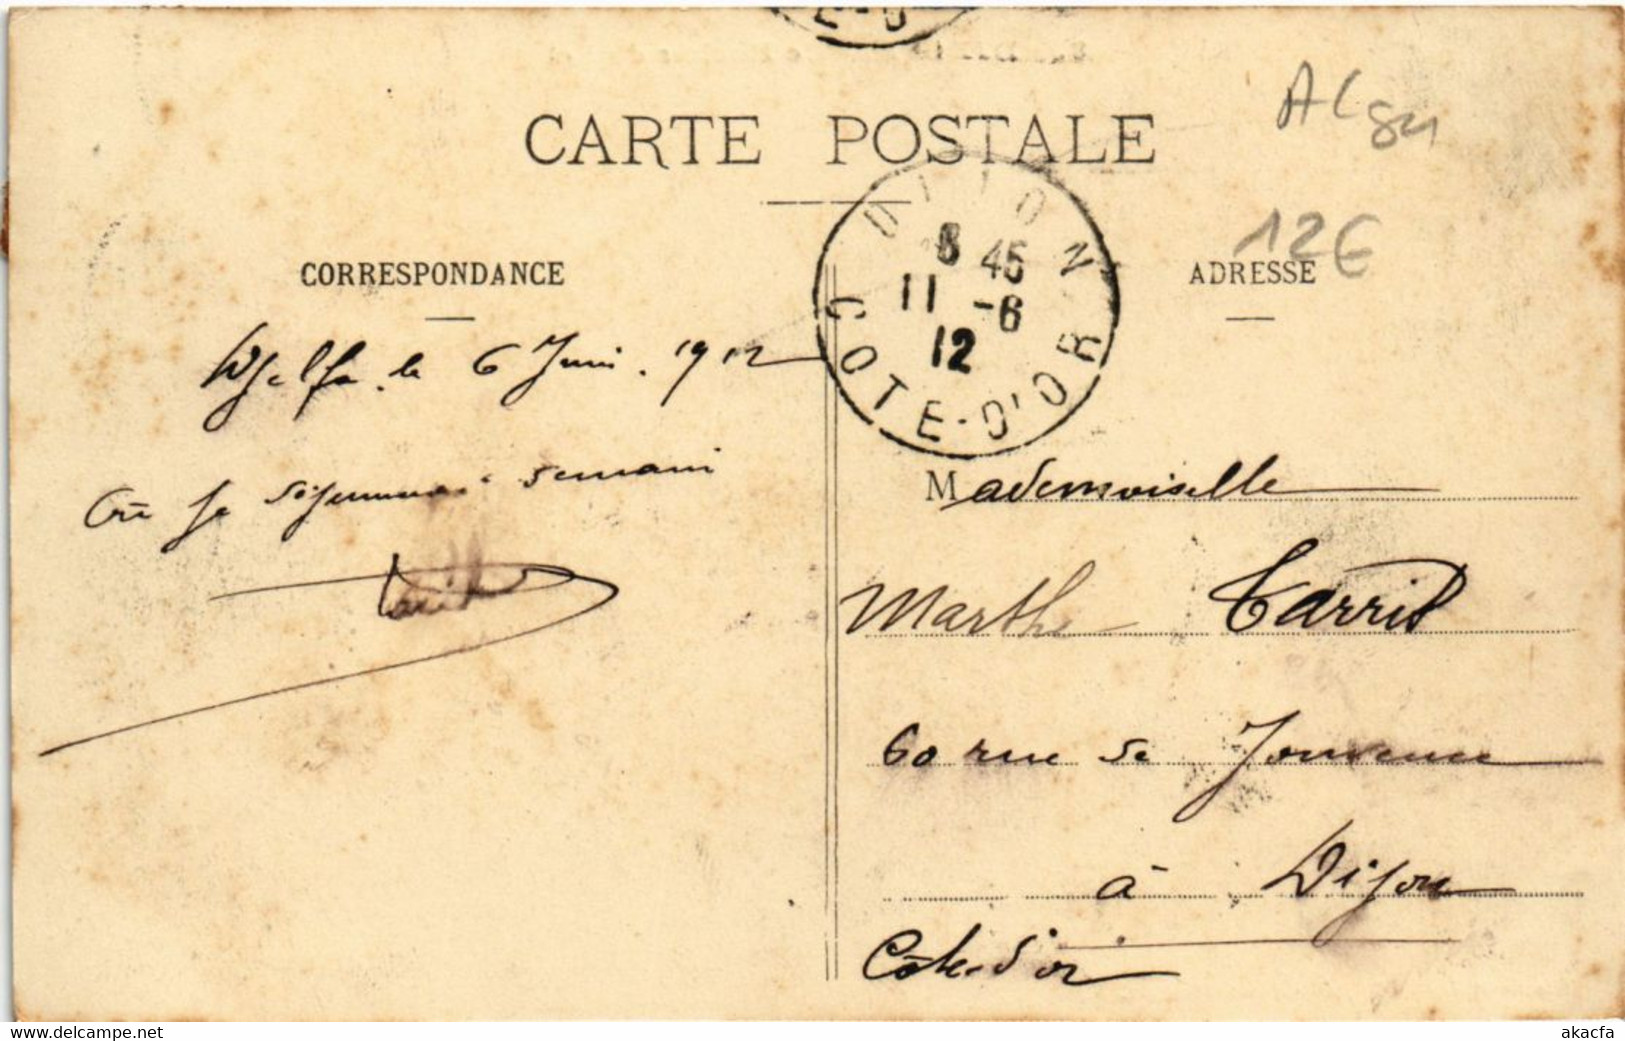 E-D
CARTE POSTALE
Algu
12€
CORRESPONDANCE
ADRESSE
DIJON
8 45
11 -6
12
COTE-D'OR
Djelfa. le 6 Juin. 1912
Où je semain
Mademoiselle
Marthe Tarrit
60 rue de Jouvence
à Dijon
Côte-d'or
delcampe.net
akacfa